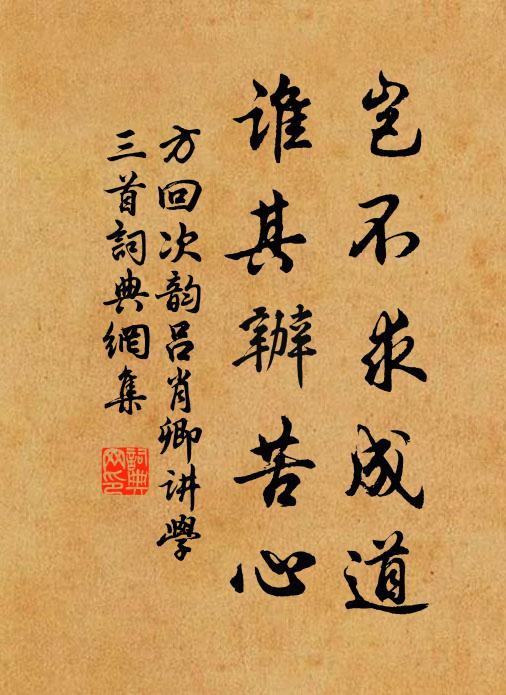 岂不求成道
谁其辦苦心
方回次韵吕肖卿讲学
三首詞典網集
詞典
網印